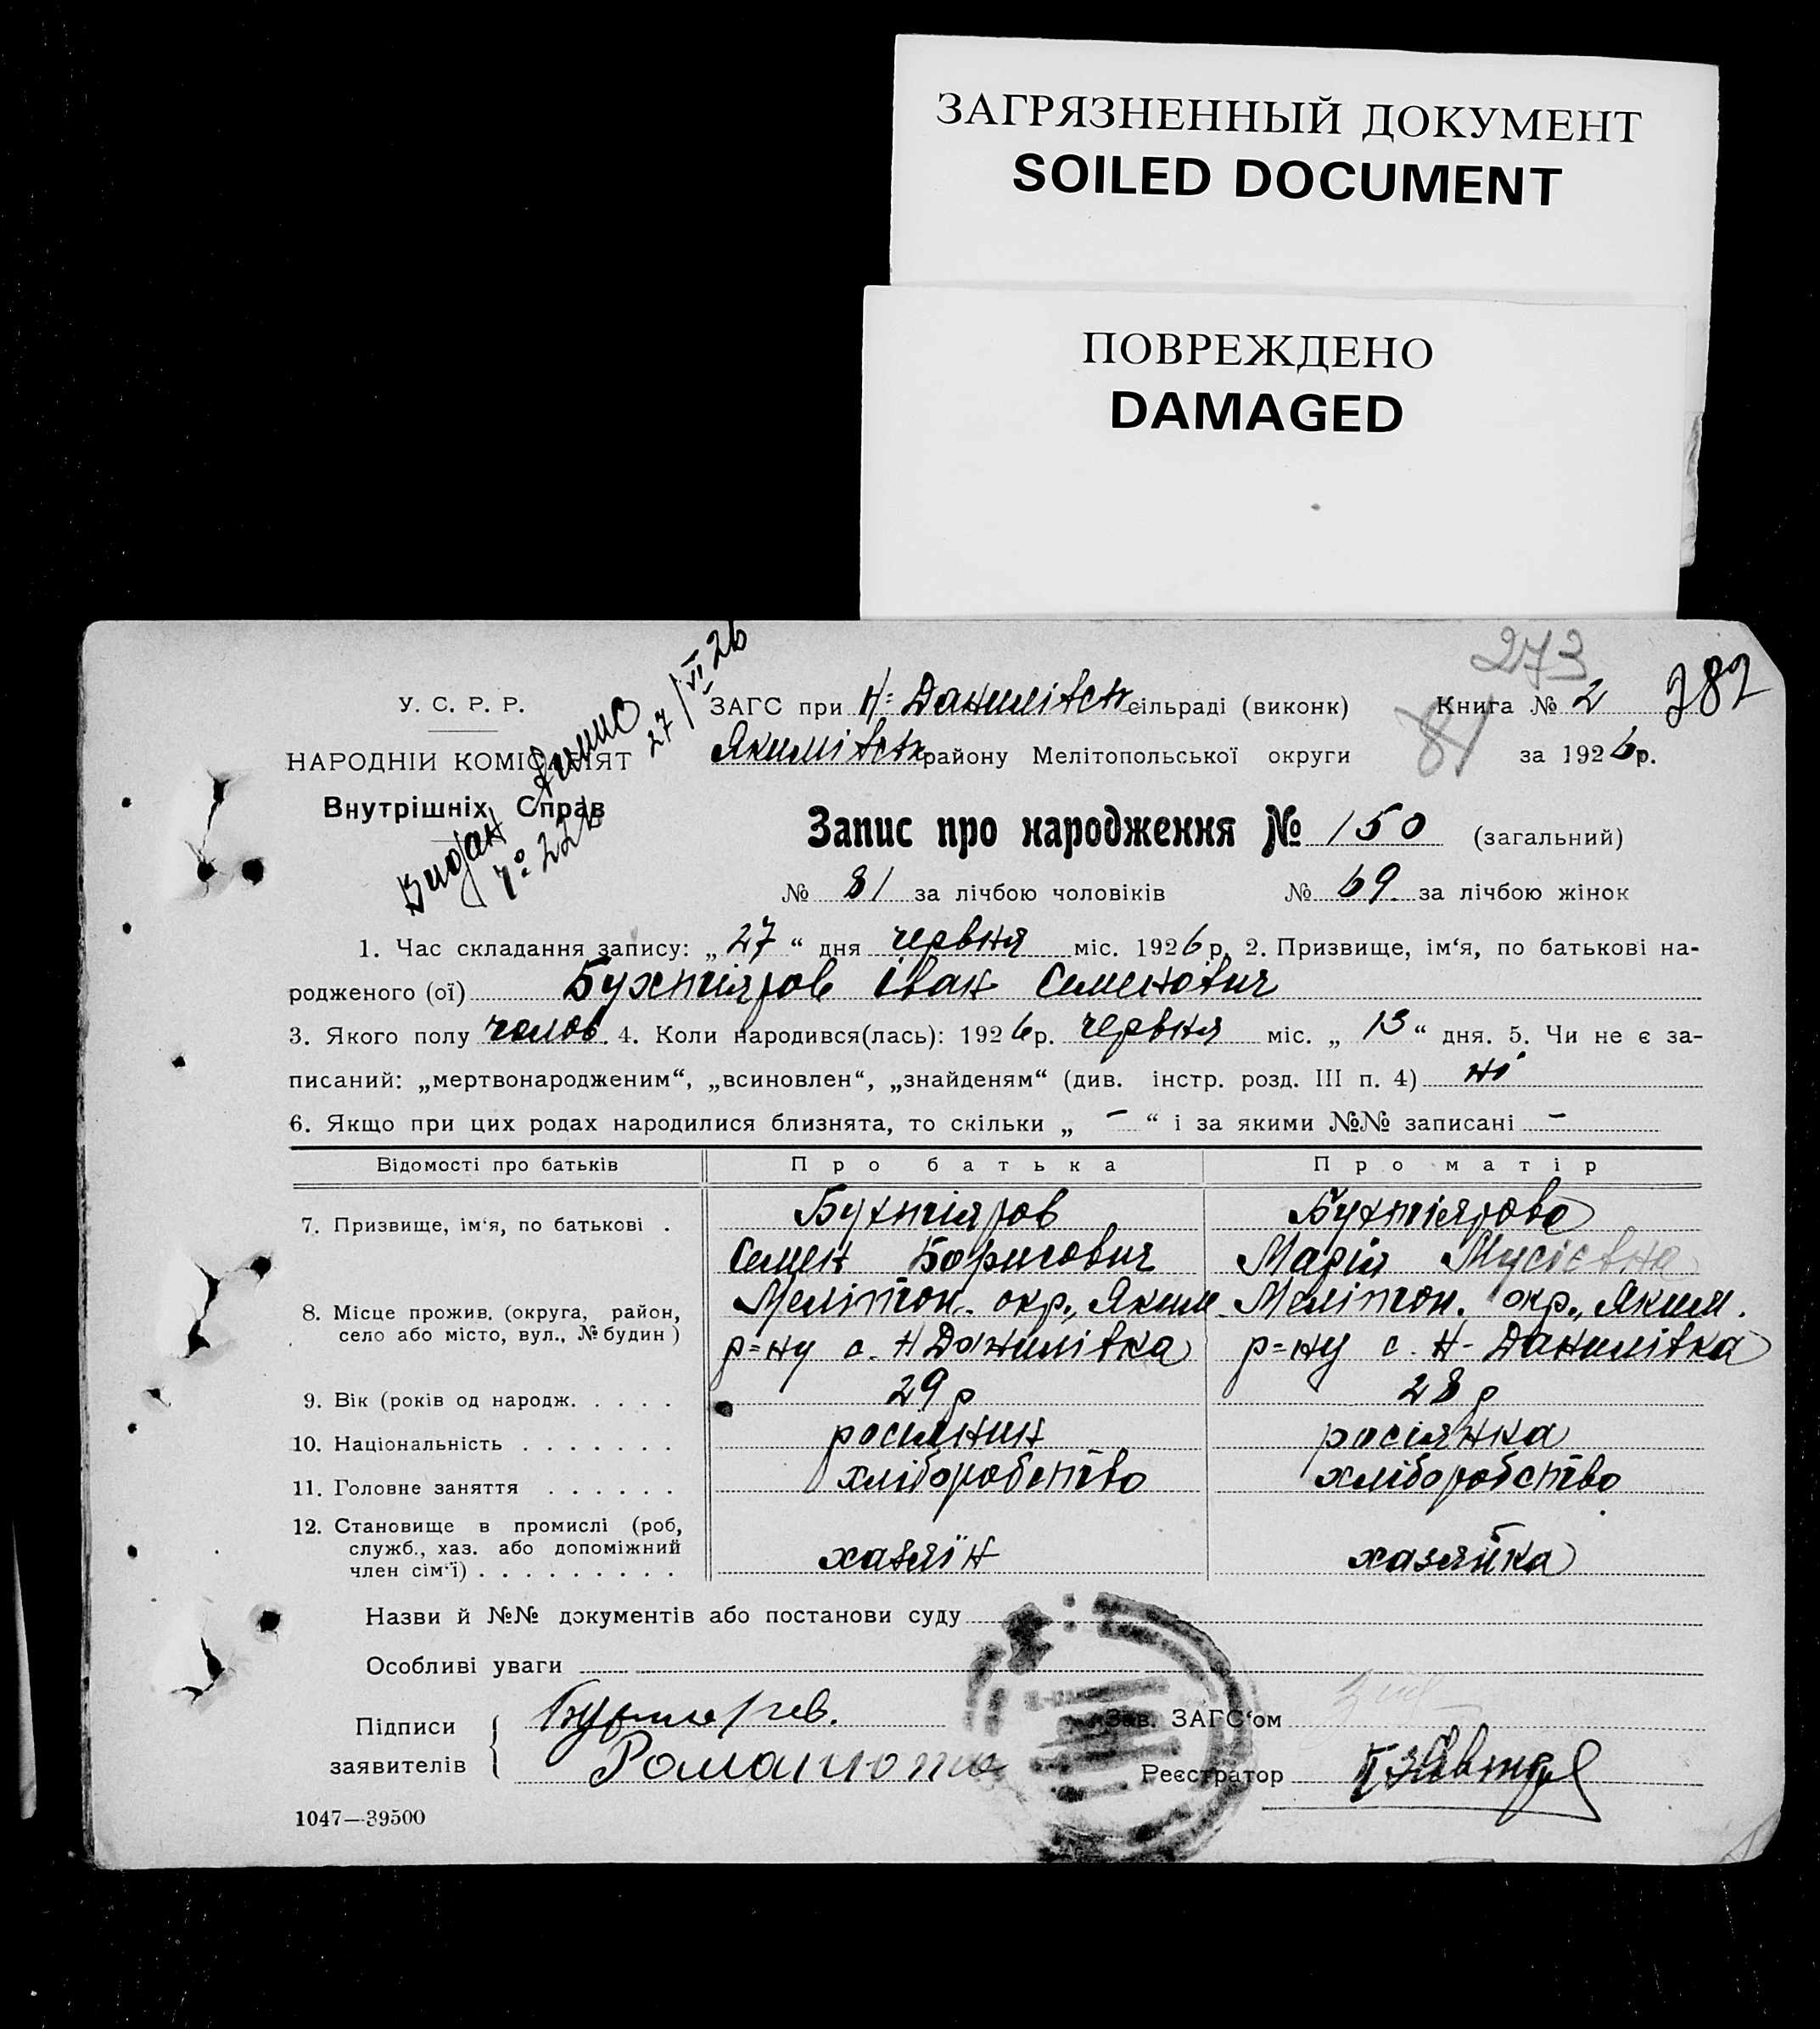 ЗАГРЯЗНЕННЫЙ ДОКУМЕНТ
SOILED DOCUMENT
ПОВРЕЖДЕНО
DAMAGED
273
282
81
У. С. Р. Р.
НАРОДНІЙ КОМІСАРІЯТ
Внутрішніх Справ
Видан
27/VI 26
ЗАГС при Н-Данилівськ сільраді (виконк) Книга № 2
Якимівськ району Мелітопольської округи за 1926 р.
Запис про народження № 150 (загальний)
№ 81 за лічбою чоловіків № 69. за лічбою жінок
1. Час складання запису: „27“ дня червня міс. 1926 р. 2. Призвище, ім‘я, по батькові на-
родженого (ої) Бухтіяров Іван Семенович
3. Якого полу чолов. 4. Коли народився(лась): 1926 р. червня міс. „13“ дня. 5. Чи не є за-
писаний: „мертвонародженим“, „всиновлен“, „знайденям“ (див. інстр. розд. III п. 4) ні
6. Якщо при цих родах народилися близнята, то скільки „ – “ і за якими №№ записані –
Відомості про батьків Про батька Про матір
7. Призвище, ім‘я, по батькові . Бухтіяров Бухтіярова
Семен Борисович Марія Мусієвна
8. Місце прожив. (округа, район, Мелітоп. окр., Яким Мелітоп. окр., Яким.
село або місто, вул., № будин) р=ну с. Н Данилівка р=ну с. Н-Данилівка
9. Вік (років од народж. . . . . 29 р 28 р
10. Національність . . . . . . . росиянин росіянка
11. Головне заняття . . . . . . хліборобство хліборобство
12. Становище в промислі (роб,
служб., хаз. або допоміжний хазяїн хазяйка
член сім‘ї) . . . . . . . . .
Назви й №№ документів або постанови суду
Особливі уваги
Підписи Зав. ЗАГС‘ом
заявителів Реєстратор
1047—39500